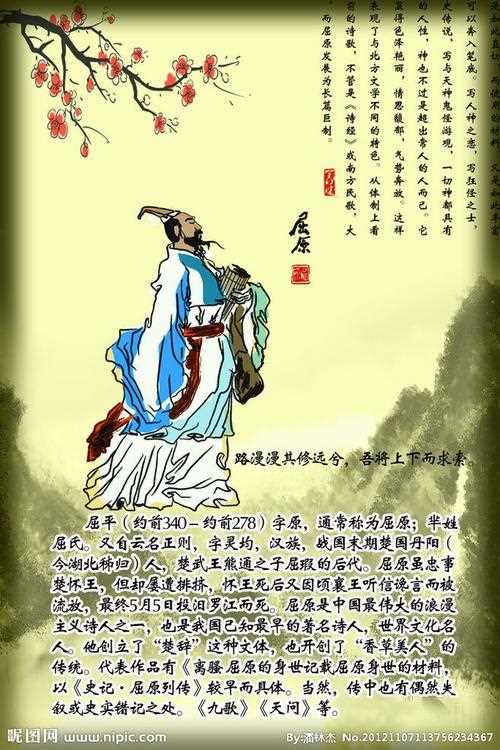 可以奔入笔底。写人神之恋，写狂怪之士，
史传说，写与天神鬼怪游观，一切神都具有
的人性，神也不过是超出常人的人而已。它
显得色泽艳丽，情思馥郁，气势奔放。这样
表现了与北方文学不同的特色。从体制上看
前的诗歌，不管是《诗经》或南方民歌，大
，而屈原发展为长篇巨制。
屈原
路漫漫其修远兮，吾将上下而求索。
屈平（约前340－约前278）字原，通常称为屈原；芈姓
屈氏。又自云名正则，字灵均，汉族，战国末期楚国丹阳（
今湖北秭归）人，楚武王熊通之子屈瑕的后代。屈原虽忠事
楚怀王，但却屡遭排挤，怀王死后又因顷襄王听信谗言而被
流放，最终5月5日投汨罗江而死。屈原是中国最伟大的浪漫
主义诗人之一，也是我国已知最早的著名诗人，世界文化名
人。他创立了“楚辞”这种文体，也开创了“香草美人”的
传统。代表作品有《离骚 屈原的身世记载屈原身世的材料，
以《史记·屈原列传》较早而具体。当然，传中也有偶然失
叙或史实错记之处。《九歌》《天问》等。
昵图网 www.nipic.com
By:潘林杰 No:20121107113756234367